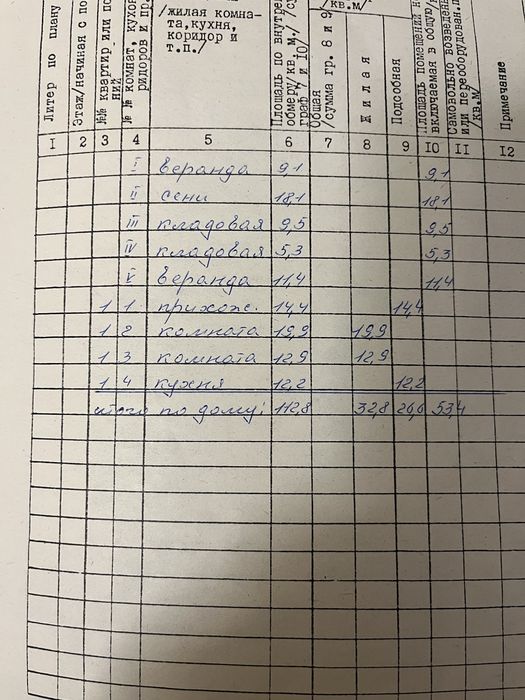 Литер по плану
Этаж/начиная с по
№№ квартир или по
ний
№ № комнат, кухо
ридоров и пр.
/жилая комна-
та,кухня,
коридор и
т.п./
Площадь по внутрен
обмеру/кв.м./су
граф и 10/
/кв.м/
Общая
/сумма гр. 8 и 9
Жилая
Подсобная
Площадь помещений не
включаемая в общую/
Самовольно возведен
или переоборудован.п
/кв.м
Примечание
1 2 3 4 5 6 7 8 9 10 11 12
I веранда 9,1 9,1
II сени 18,1 18,1
III кладовая 9,5 9,5
IV кладовая 5,3 5,3
V веранда 11,4 11,4
1 1 прихож. 14,4 14,4
1 2 комната 19,9 19,9
1 3 комната 12,9 12,9
1 4 кухня 12,2 12,2
итого по дому: 112,8 32,8 26,6 53,4